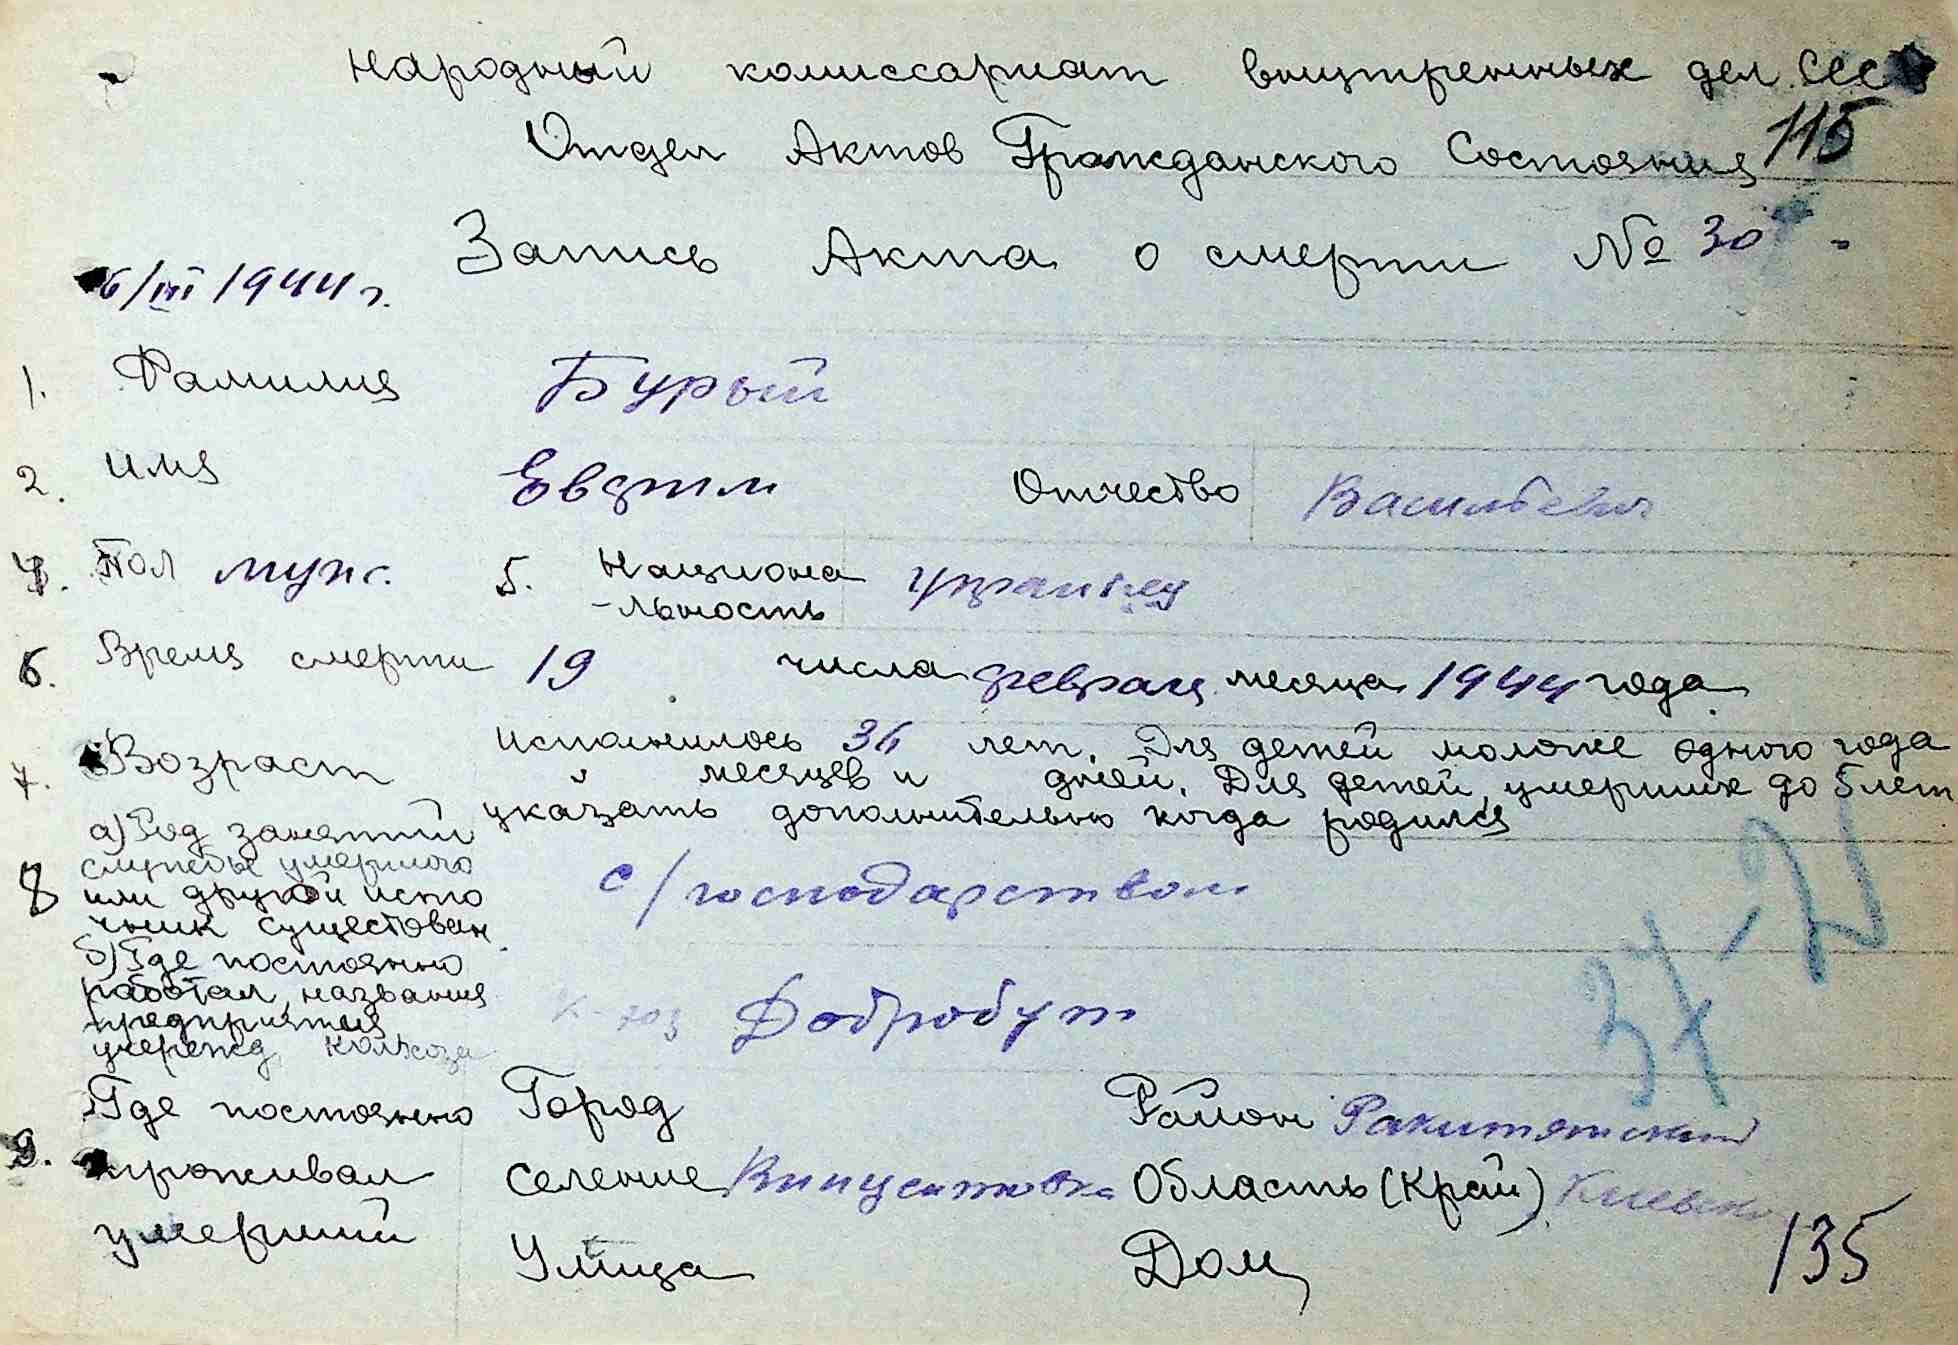 Народный комиссариат внутренных дел СССР
115
Отдел Актов Гражданского Состояния
Запись Акта о смерти № 30
6/III 1944 г.
1. Фамилия Бурый
2. имя Евдтим Отчество Васильевич
4. Пол муж. 5. Национа
-льность украинец
6. Время смерти 19 числа февраля месяца 1944 года
7. Возраст исполнилось 36 лет. Для детей моложе одного года
месяцев и дней. Для детей умерших до 5 лет
указать дополнительно когда родился
8 а) Род занятий
службы умершого
или другой исто
чник существован
с/господарством
б) Где постоянно
работал, названия
предприятия
учережд колхоза
к-тоз Добробут
37-2
9. Где постоянно Город Район Ракитянский
проживал селение Винцентовка Область (Край) Киевск
умерший Улица Дом
135